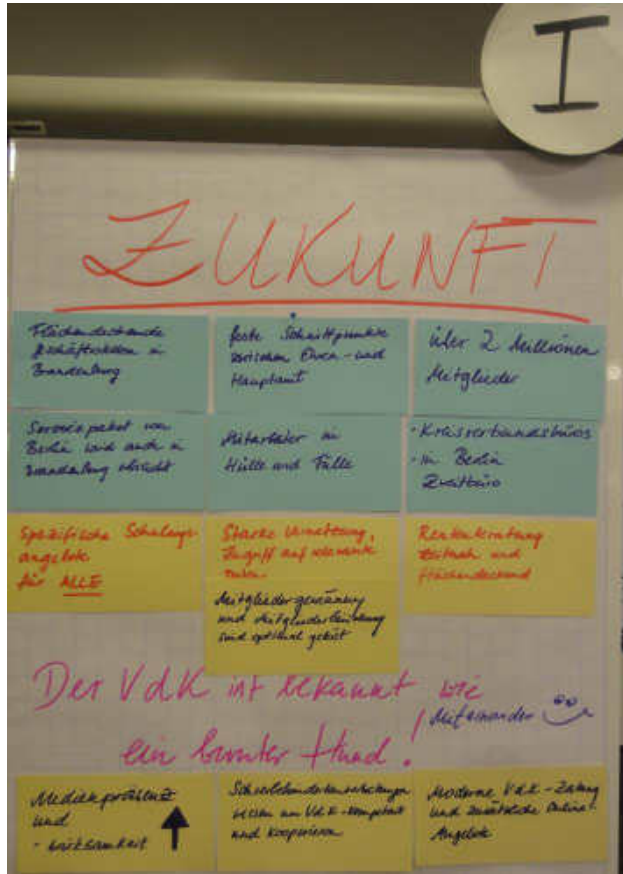 I
ZUKUNFT
Flächendeckende
Geschäftsstellen in
Brandenburg
feste Schnittpunkte
zwischen Ehren- und
Hauptamt
über 2 Millionen
Mitglieder
Servicepaket von
Berlin wird auch in
Brandenburg
Mitarbeiter in
Hülle und Fülle
- Kreisverbandsbüros
- in Berlin
Zweitbüro
Spezifische Schulungs
angebote
für ALLE
Starke Vernetzung,
Zugriff auf relevante
Mitgliedergewinnung
und Mitgliederbindung
sind optimal gelöst
Rentenberatung
Zeitnah und
Flächendeckend
Der VdK ist bekannt wie
ein bunter Hund!
Miteinander
Medienpräsenz
und
- wirksamkeit
wissen um VdK-Kompetenz
und kooperieren
Moderne VdK-Zeitung
und zusätzliche Online-
Angebote